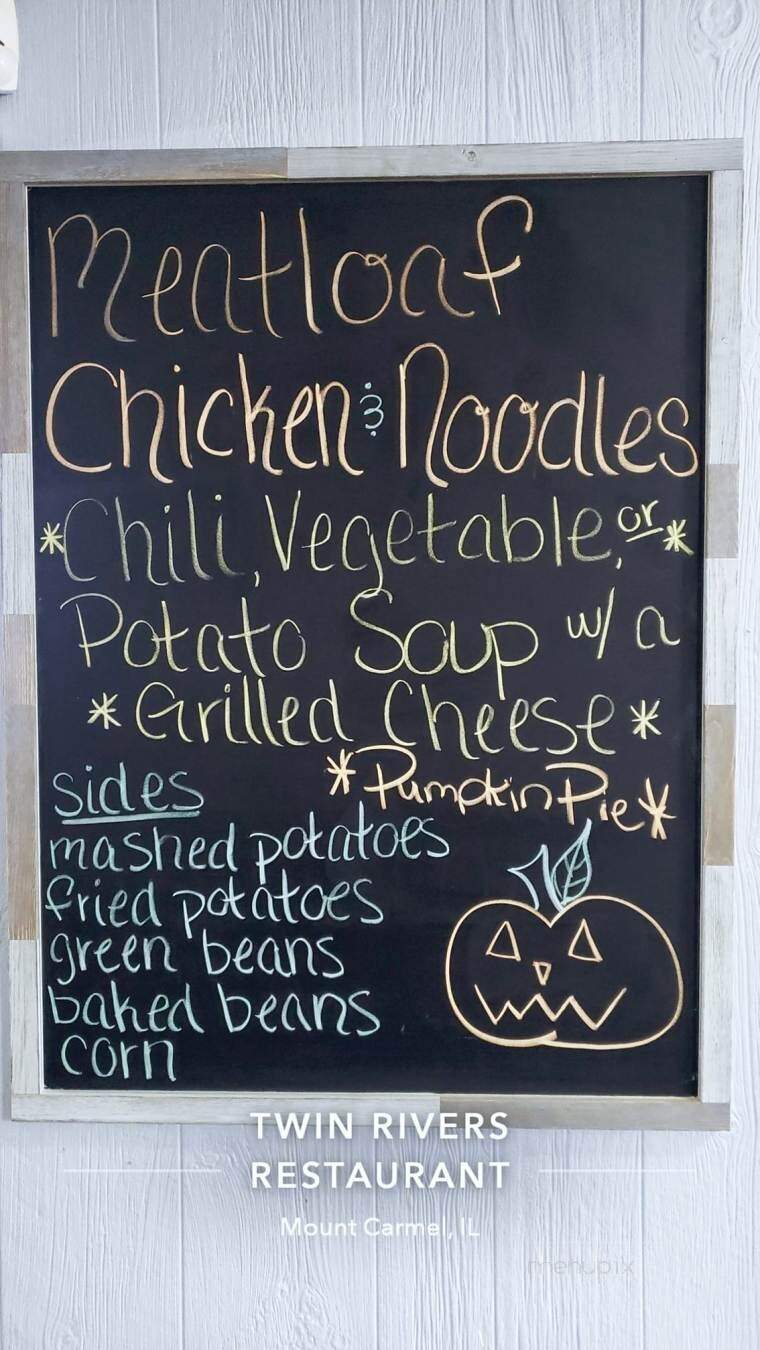 Meatloaf
Chicken & Noodles
*Chili, Vegetable, or*
Potato Soup w/ a
*Grilled Cheese*
*Pumpkin Pie*
sides
mashed potatoes
fried potatoes
green beans
baked beans
corn
TWIN RIVERS
RESTAURANT
Mount Carmel, IL
menupix